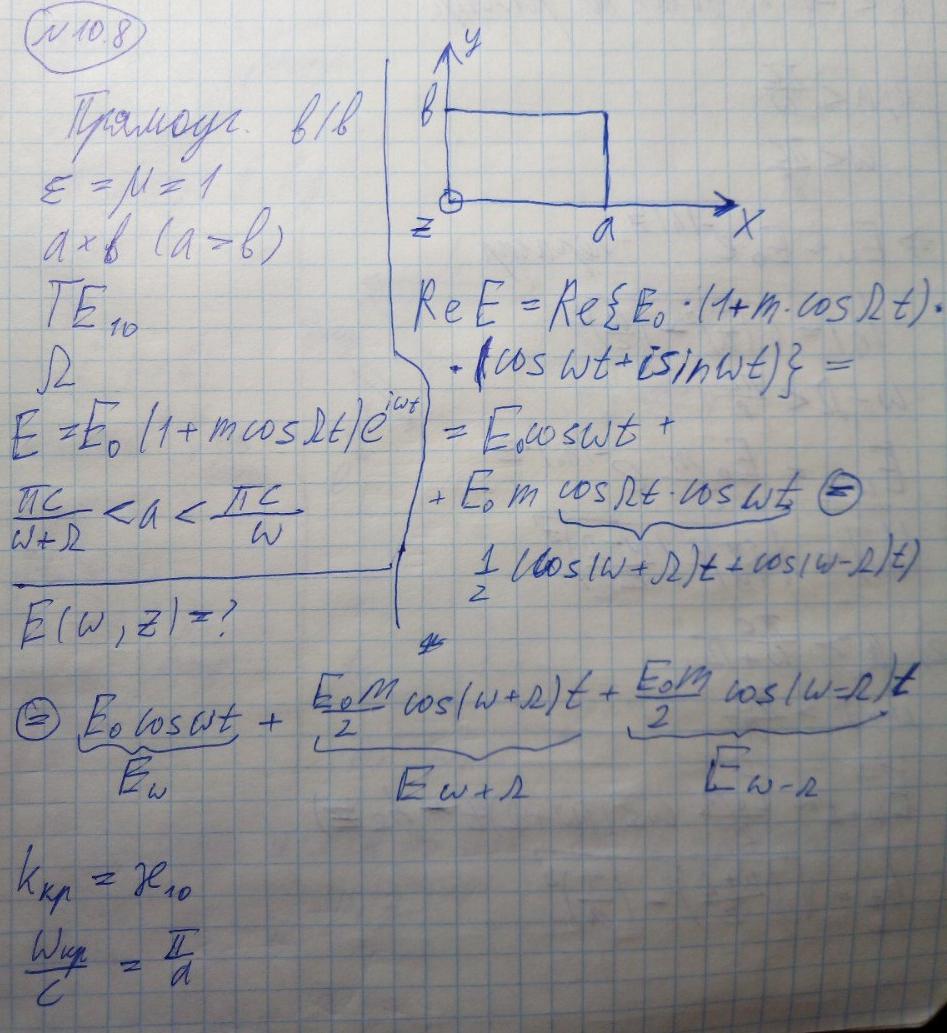 №10.8
Прямоуг. в/в
ε = μ = 1
a×b (a > b)
TE₁₀
Ω
E = E₀ (1 + m cos Ωt) e^{iωt}
πc/(ω+Ω) < a < πc/ω
E(ω, z) = ?
y
b
z
a
x
Re E = Re{E₀ · (1 + m · cos Ωt) ·
· (cos ωt + i sin ωt)} =
= E₀ cos ωt +
+ E₀ m cos Ωt · cos ωt ⊜
1/2 (cos(ω + Ω)t + cos(ω - Ω)t)
⊜ E₀ cos ωt + E₀m/2 cos(ω + Ω)t + E₀m/2 cos(ω - Ω)t
E_ω E_{ω+Ω} E_{ω-Ω}
k_кр = æ₁₀
ω_кр/c = π/a